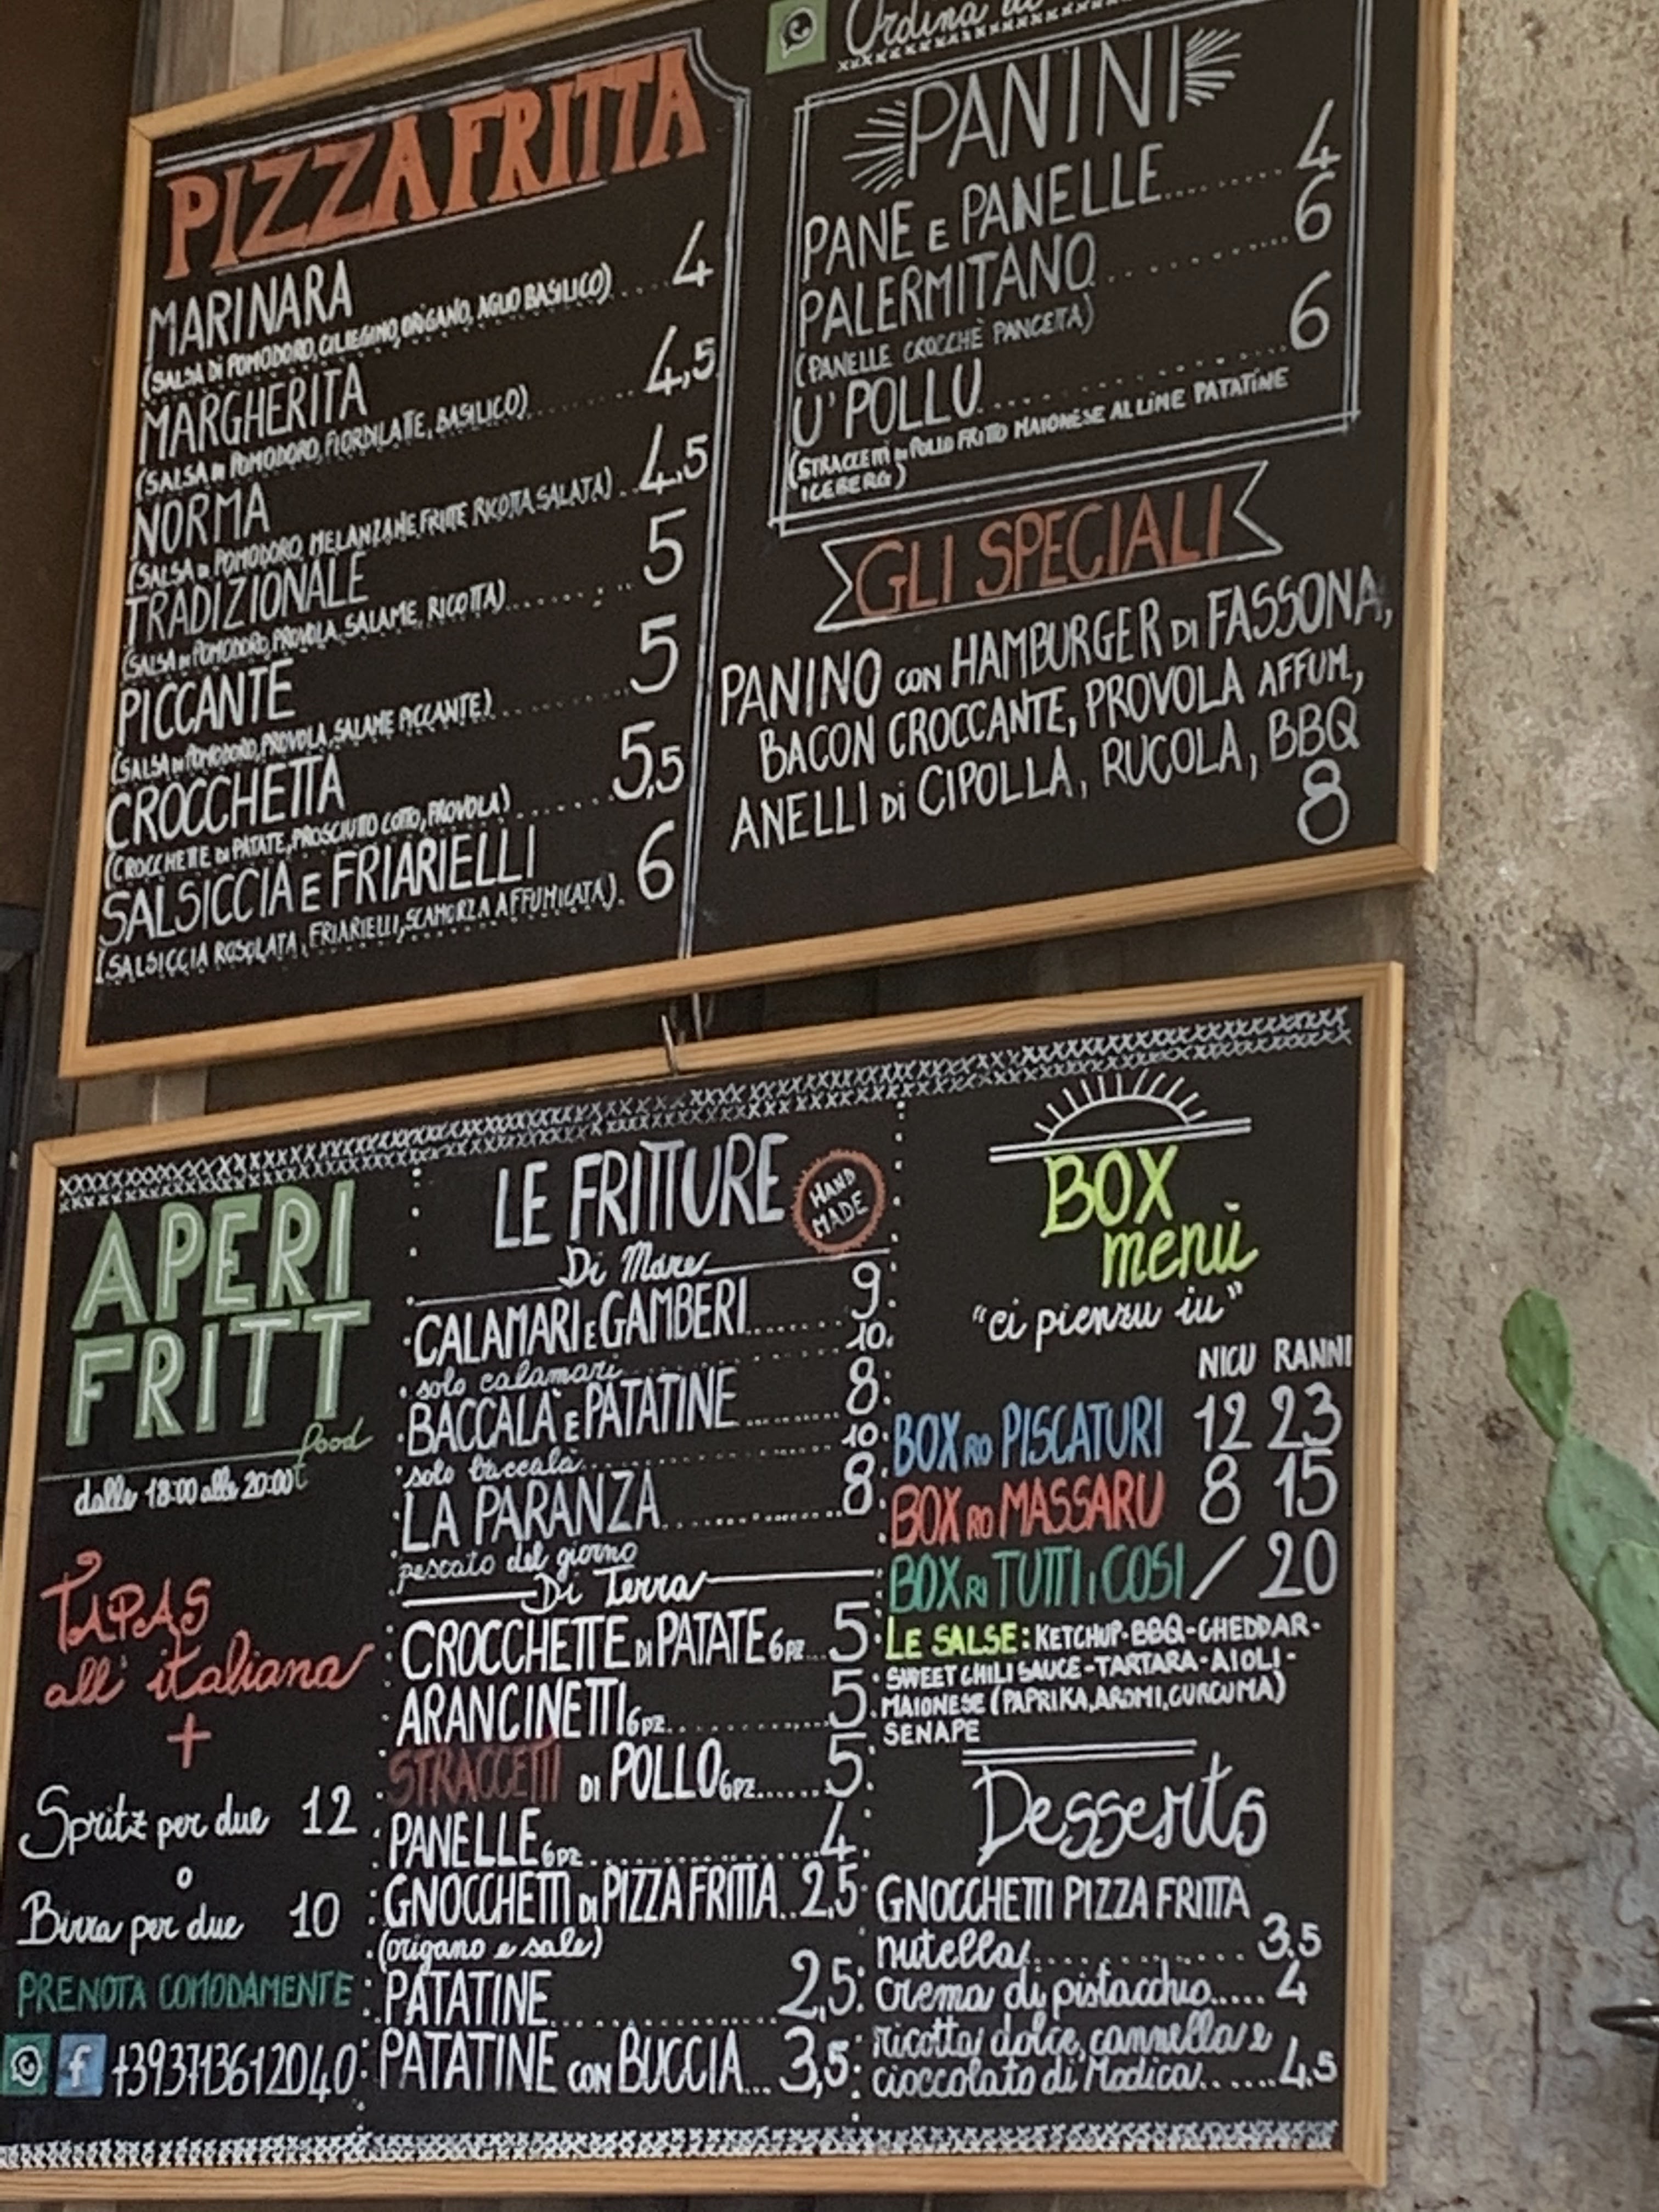 PIZZA FRITTA
MARINARA
(SALSA DI POMODORO, CILIEGINO, ORIGANO, AGLIO BASILICO).... 4
MARGHERITA
(SALSA DI POMODORO, FIORDILATTE, BASILICO)......... 4,5
NORMA
(SALSA DI POMODORO, MELANZANE FRITTE RICOTTA SALATA).. 4,5
TRADIZIONALE
(SALSA DI POMODORO, PROVOLA, SALAME, RICOTTA)......... 5
PICCANTE
(SALSA DI POMODORO, PROVOLA, SALAME PICCANTE)......... 5
CROCCHETTA
(CROCCHETTE DI PATATE, PROSCIUTTO COTTO, PROVOLA)....... 5,5
SALSICCIA E FRIARIELLI
(SALSICCIA ROSOLATA, FRIARIELLI, SCAMORZA AFFUMICATA). 6
Ordina
PANINI
PANE E PANELLE......... 4
PALERMITANO......... 6
(PANELLE CROCCHÈ PANCETTA)
U' POLLU......... 6
(STRACCETTI DI POLLO FRITTO MAIONESE AL LIME PATATINE
ICEBERG)
GLI SPECIALI
PANINO CON HAMBURGER DI FASSONA,
BACON CROCCANTE, PROVOLA AFFUM,
ANELLI Di CIPOLLA, RUCOLA, BBQ
8
APERI
FRITT
food
dalle 18:00 alle 20:00
TAPAS
all' italiana
+
Spritz per due 12
o
Birra per due 10
PRENOTA COMODAMENTE
+393713612040
LE FRITTURE
HAND
MADE
Di Mare
CALAMARI E GAMBERI....... 9
solo calamari......... 10
BACCALÀ E PATATINE........ 8
solo baccalà......... 10
LA PARANZA............ 8
pescato del giorno
Di Terra
CROCCHETTE DI PATATE 6PZ... 5
ARANCINETTI 6PZ............ 5
STRACCETTI DI POLLO 6PZ...... 5
PANELLE 6PZ............... 4
GNOCCHETTI DI PIZZA FRITTA.. 2,5
(origano e sale)
PATATINE............... 2,5
PATATINE CON BUCCIA... 3,5
BOX
menù
"ci pienzu iu"
NICU RANNI
BOX RO PISCATURI 12 23
BOX RO MASSARU 8 15
BOX RI TUTTI I COSI / 20
LE SALSE: KETCHUP-BBQ-CHEDDAR-
SWEET CHILI SAUCE-TARTARA-AIOLI-
MAIONESE (PAPRIKA, AROMI, CURCUMA)
SENAPE
Desserts
GNOCCHETTI PIZZA FRITTA
nutella............ 3.5
crema di pistacchio..... 4
ricotta dolce, cannella e
cioccolato di Modica...... 4.5